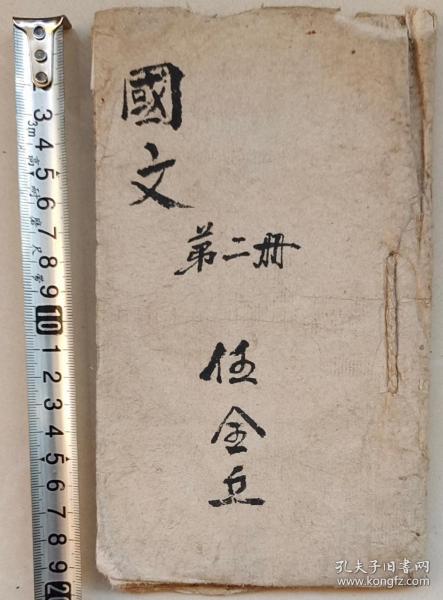 國文
第二册
任全丘
3m
高耐磨尺帶
3 4 5 6 7 8 9 10 1 2 3 4 5 6 7 8 9 20
孔夫子旧书网
www.kongfz.com